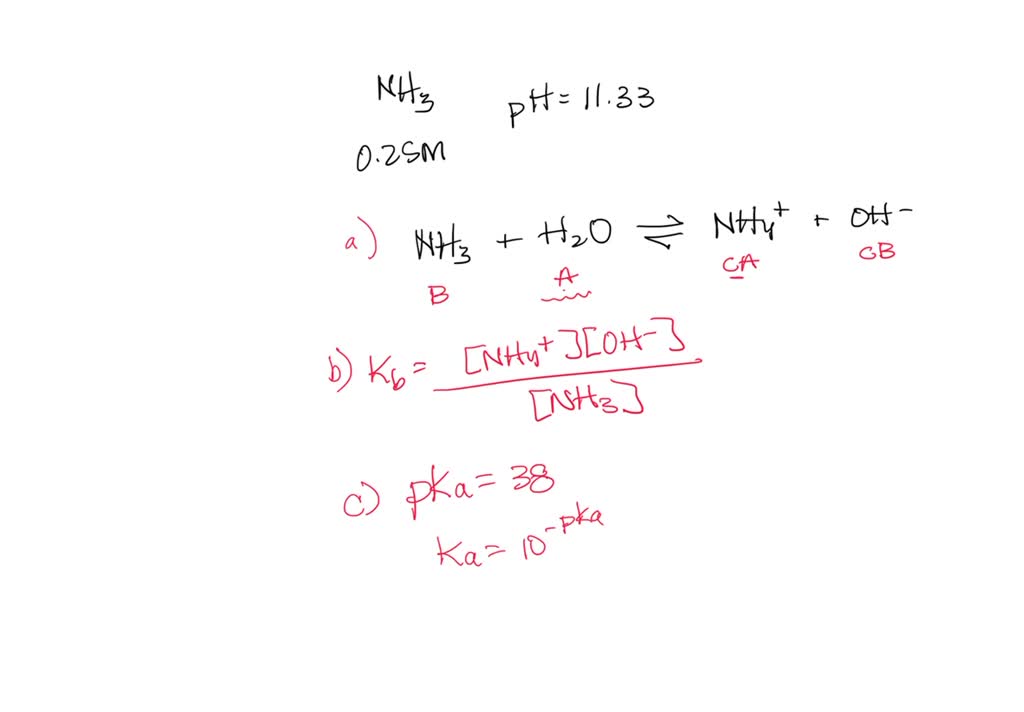 NH₃ pH = 11.33
0.25M
a) NH₃ + H₂O ⇌ NH₄⁺ + OH⁻
B A CA CB
b) Kb = [NH₄⁺][OH⁻] / [NH₃]
c) pKa = 38
Ka = 10^-pKa